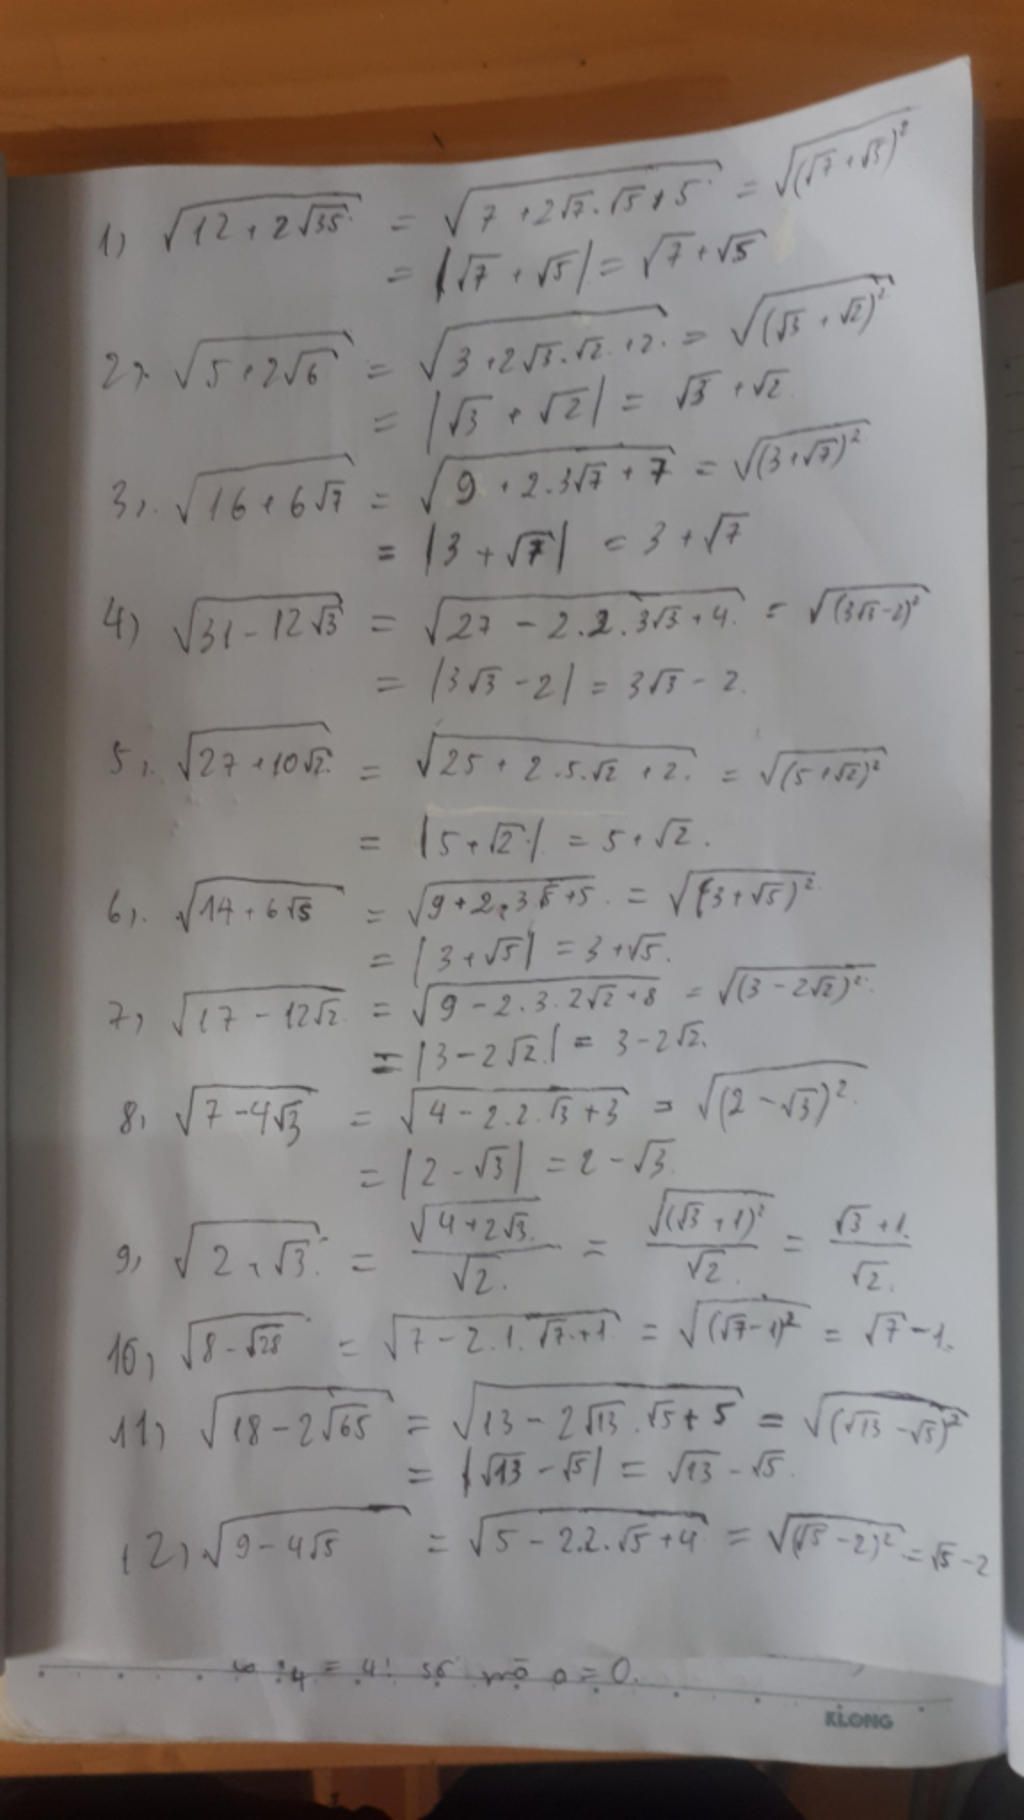 1) √(12 + 2√35) = √(7 + 2√7.√5 + 5) = √((√7 + √5)²)
= |√7 + √5| = √7 + √5
2) √(5 + 2√6) = √(3 + 2√3.√2 + 2) = √((√3 + √2)²)
= |√3 + √2| = √3 + √2
3) √(16 + 6√7) = √(9 + 2.3√7 + 7) = √((3 + √7)²)
= |3 + √7| = 3 + √7
4) √(31 - 12√3) = √(27 - 2.2.3√3 + 4) = √((3√3 - 2)²)
= |3√3 - 2| = 3√3 - 2.
5) √(27 + 10√2) = √(25 + 2.5.√2 + 2) = √((5 + √2)²)
= |5 + √2| = 5 + √2.
6) √(14 + 6√5) = √(9 + 2.3√5 + 5) = √((3 + √5)²)
= |3 + √5| = 3 + √5.
7) √(17 - 12√2) = √(9 - 2.3.2√2 + 8) = √((3 - 2√2)²)
= |3 - 2√2| = 3 - 2√2.
8) √(7 - 4√3) = √(4 - 2.2.√3 + 3) = √((2 - √3)²)
= |2 - √3| = 2 - √3.
9) √(2 + √3) = √(4 + 2√3)/√2 = √((√3 + 1)²)/√2 = (√3 + 1)/√2.
10) √(8 - √28) = √(7 - 2.1.√7 + 1) = √((√7 - 1)²) = √7 - 1.
11) √(18 - 2√65) = √(13 - 2√13.√5 + 5) = √((√13 - √5)²)
= |√13 - √5| = √13 - √5.
12) √(9 - 4√5) = √(5 - 2.2.√5 + 4) = √((√5 - 2)²) = √5 - 2
= 0.
KLONG